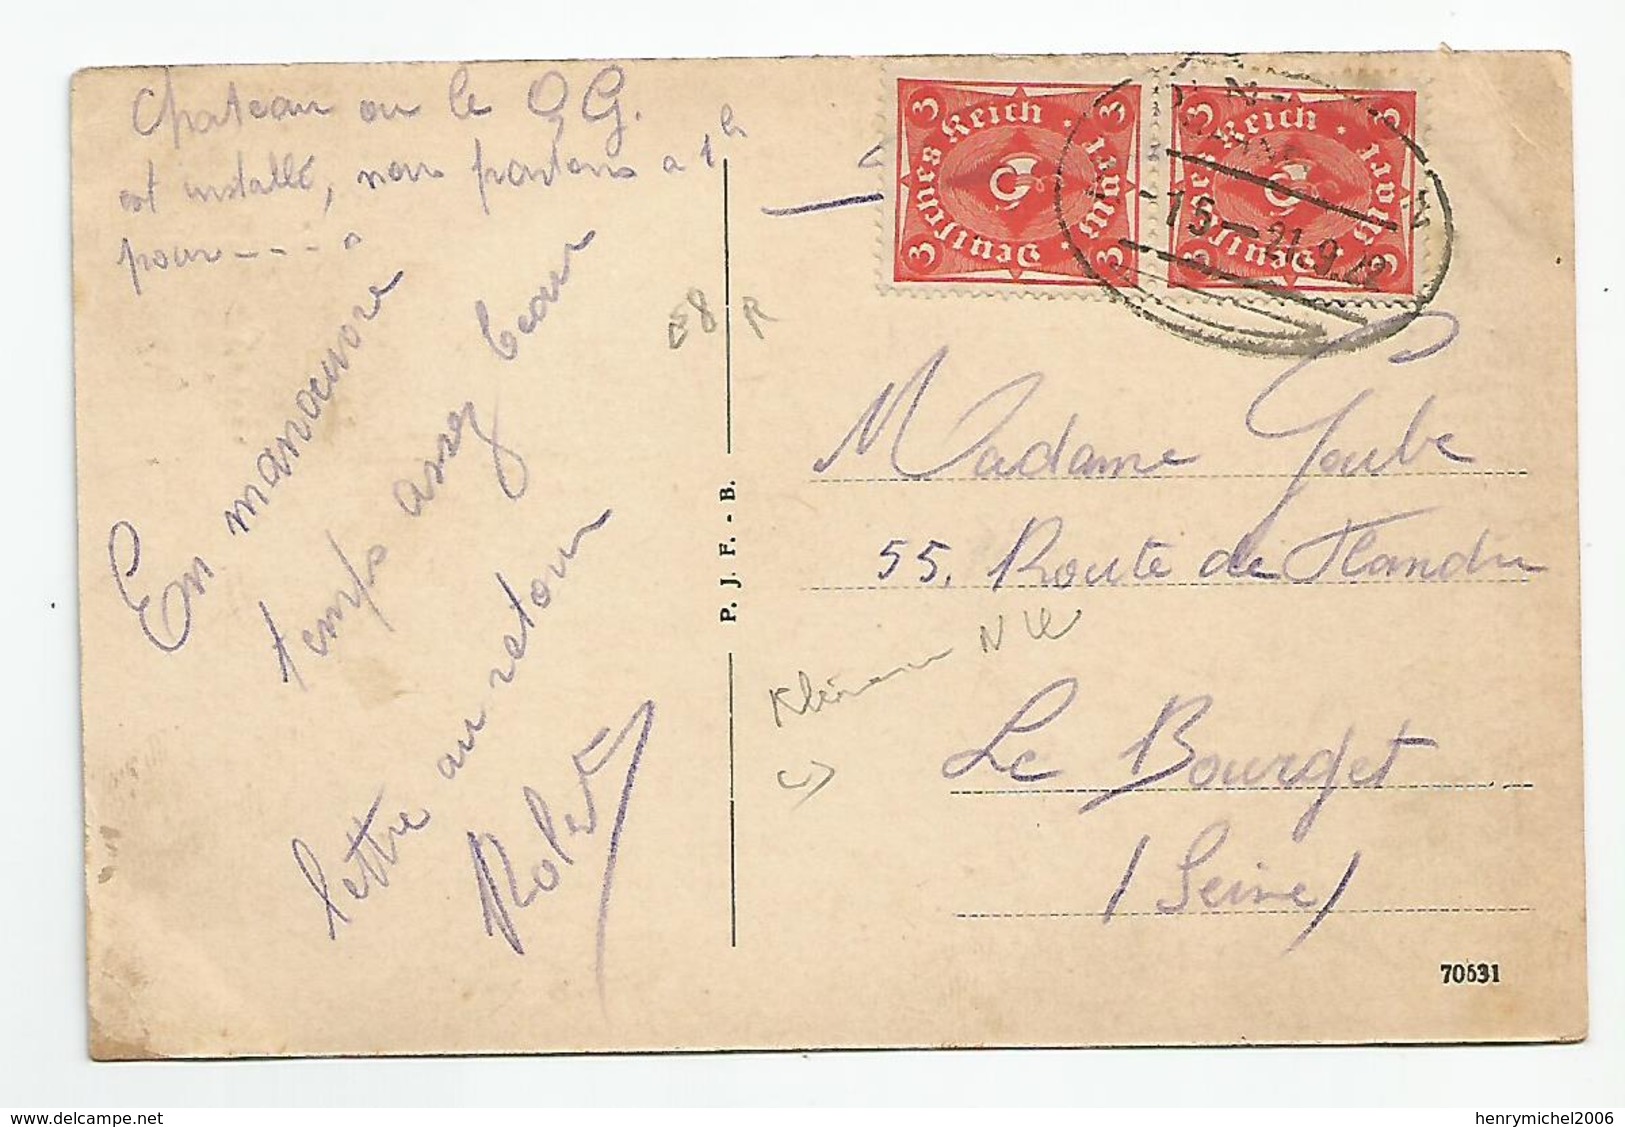 Chateau ou le Q G.
est installé, nous partons a 1h
pour - - - -
En manoeuvre
temps assez beau
lettre au retour
Robert
E8 R
P. J. F. - B.
3 3 Deutsches Reich * 3 Mark * 3
3 3 Deutsches Reich * 3 Mark * 3
15 - 21.9.22
Madame Goube
55, Route de Flandre
Le Bourget
(Seine)
70531
delcampe.net
henrymichel2006